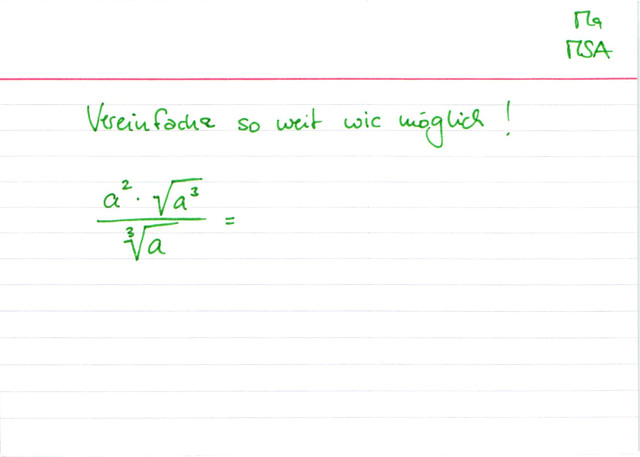 Ma
MSA
Vereinfache so weit wie möglich!
a² · √a³
³√a =